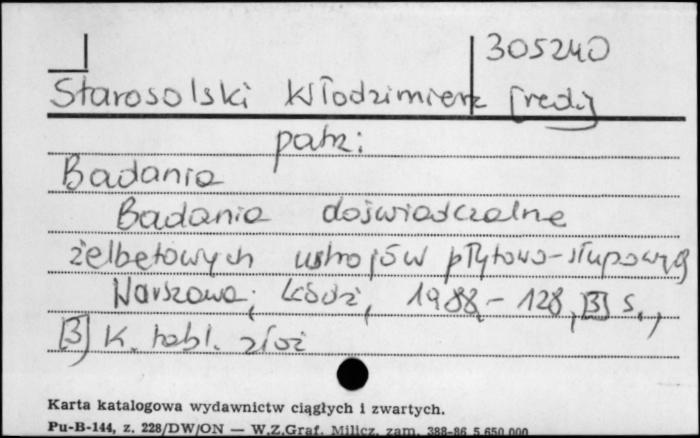 305240
Starosolski Włodzimierz [red.]
patrz:
Badania
Badania doświadczalne
żelbetowych ustrojów płytowo-słupowych
Warszawa; Łódź, 1988 - 128, [3] s.,
[3] k. tabl. złoż
Karta katalogowa wydawnictw ciągłych i zwartych.
Pu-B-144, z. 228/DW/ON — W.Z.Graf. Milicz, zam. 388-86 5.650.000